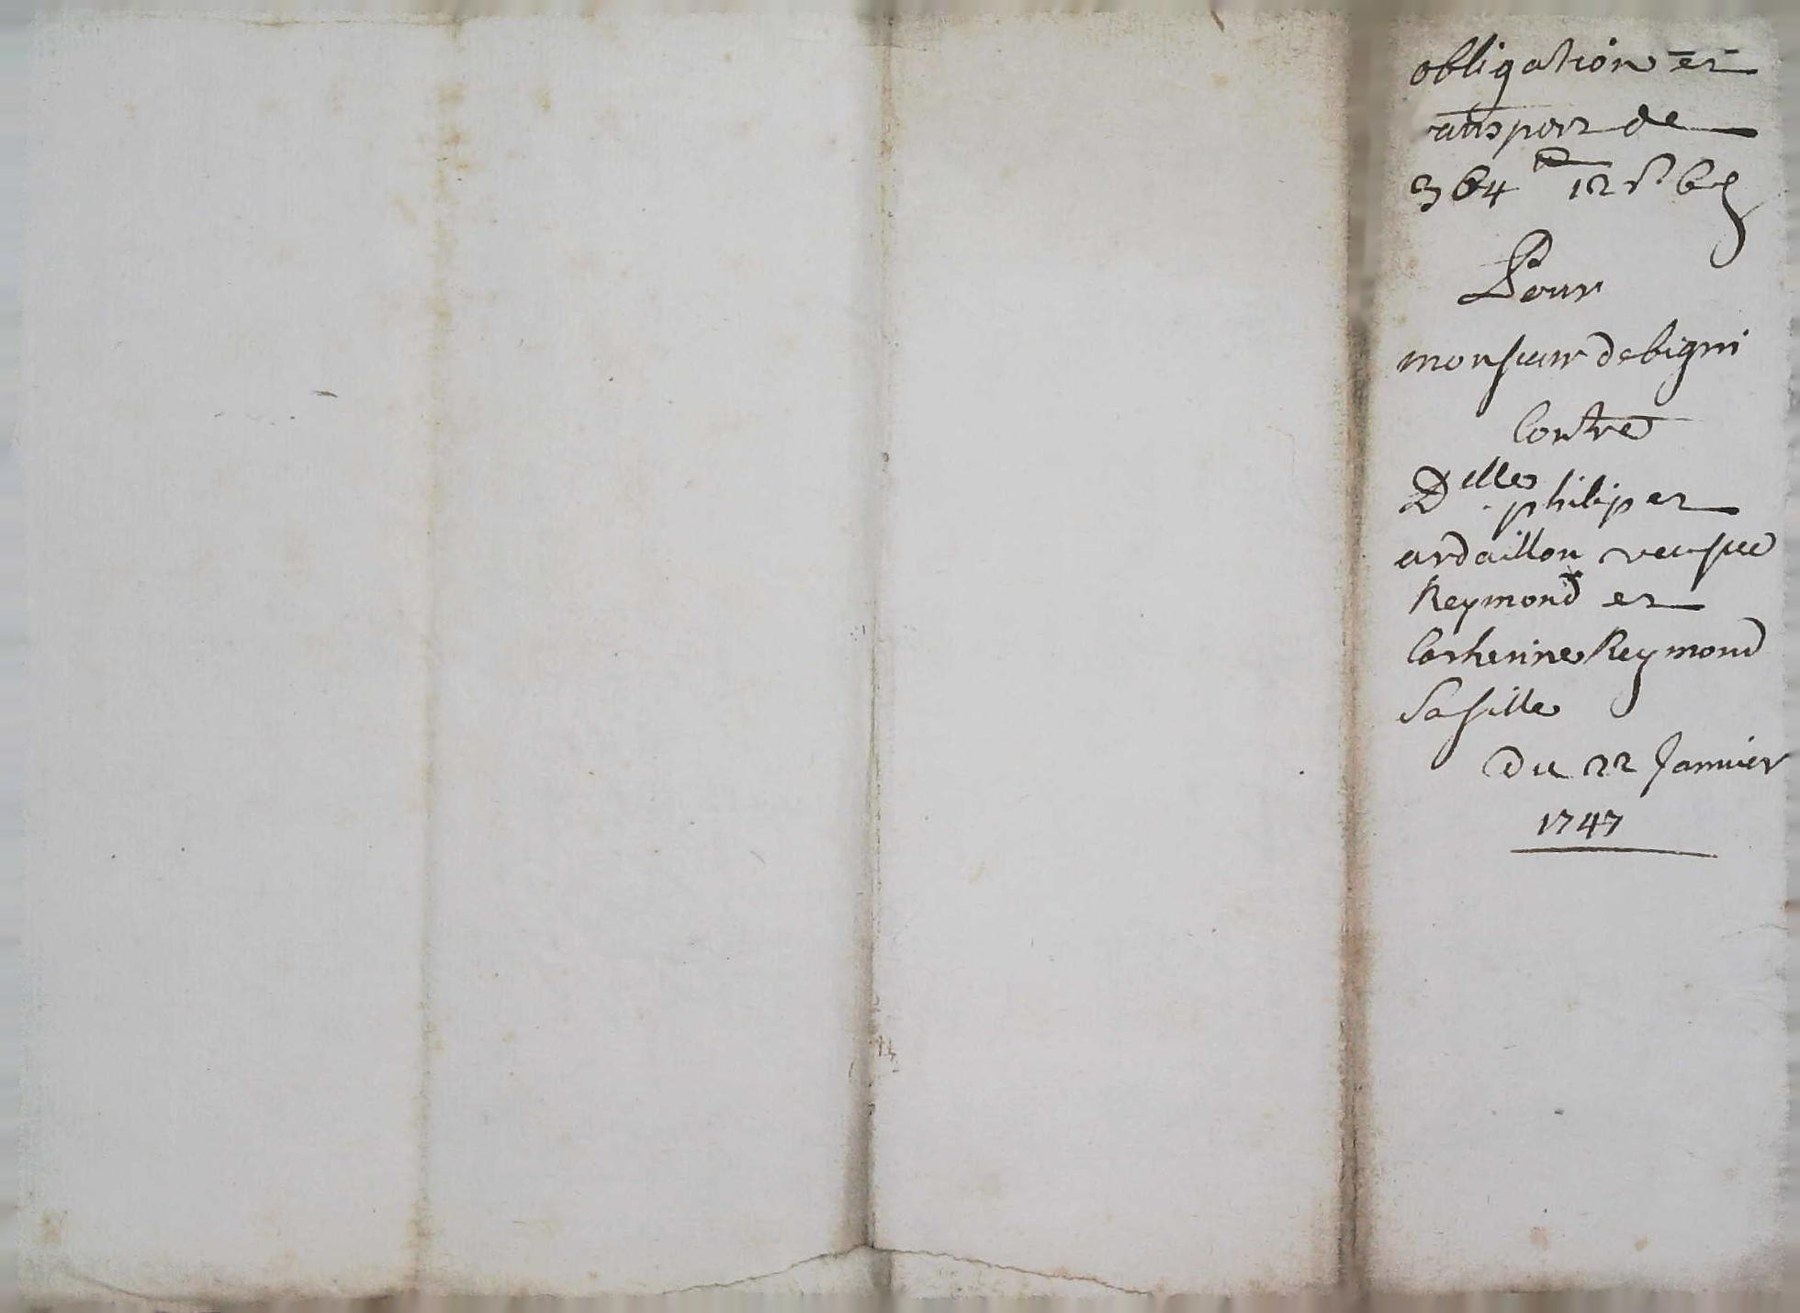 obligation et
transport de
364ᵗᵗ 12 s 6 d
Pour
monsieur debigni
Contre
Dˡˡᵉˢ philip et
ardaillon veusue
Reymond et
Catherine Reymond
Sa fille
Du 22 Janvier
1747